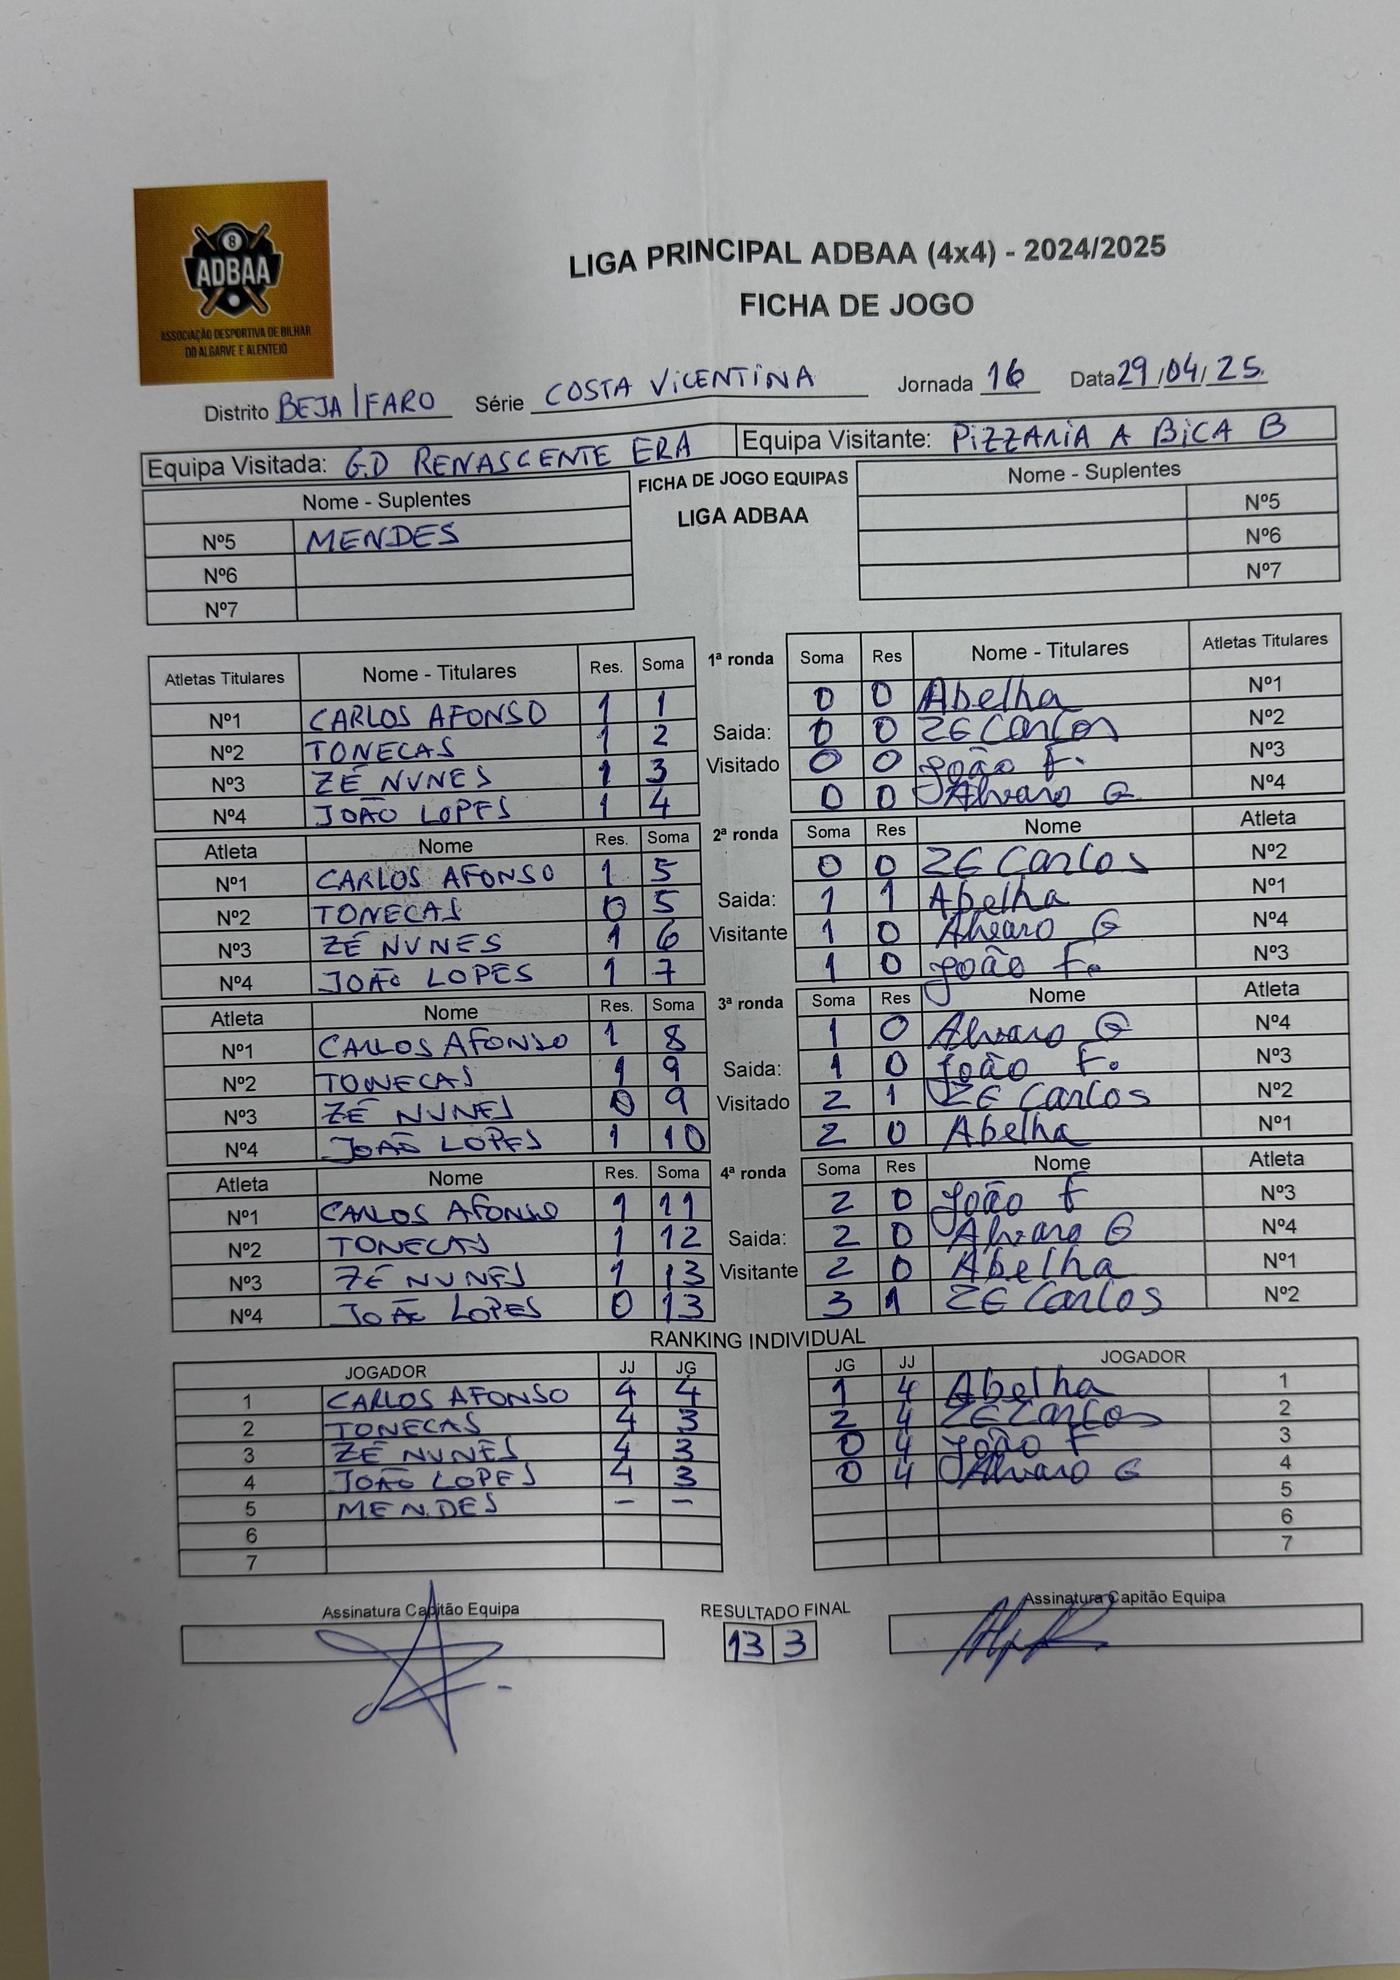 8
ADBAA
ASSOCIAÇÃO DESPORTIVA DE BILHAR
DO ALGARVE E ALENTEJO
LIGA PRINCIPAL ADBAA (4x4) - 2024/2025
FICHA DE JOGO
Distrito BEJA/FARO Série COSTA VICENTINA Jornada 16 Data 29/04/25
Equipa Visitada: G.D RENASCENTE ERA Equipa Visitante: PIZZARIA A BICA B
Nome - Suplentes FICHA DE JOGO EQUIPAS Nome - Suplentes
LIGA ADBAA
Nº5 MENDES Nº5
Nº6 Nº6
Nº7 Nº7
Atletas Titulares Nome - Titulares Res. Soma 1ª ronda Soma Res Nome - Titulares Atletas Titulares
Nº1 CARLOS AFONSO 1 1 0 0 Abelha Nº1
Nº2 TONECAS 1 2 Saida: 0 0 ZE Carlos Nº2
Nº3 ZÉ NUNES 1 3 Visitado 0 0 João F. Nº3
Nº4 JOÃO LOPES 1 4 0 0 Alvaro G Nº4
Atleta Nome Res. Soma 2ª ronda Soma Res Nome Atleta
Nº1 CARLOS AFONSO 1 5 0 0 ZE Carlos Nº2
Nº2 TONECAS 0 5 Saida: 1 1 Abelha Nº1
Nº3 ZÉ NUNES 1 6 Visitante 1 0 Alvaro G Nº4
Nº4 JOÃO LOPES 1 7 1 0 João F. Nº3
Atleta Nome Res. Soma 3ª ronda Soma Res Nome Atleta
Nº1 CARLOS AFONSO 1 8 1 0 Alvaro G Nº4
Nº2 TONECAS 1 9 Saida: 1 0 João F. Nº3
Nº3 ZÉ NUNES 0 9 Visitado 2 1 ZE Carlos Nº2
Nº4 JOÃO LOPES 1 10 2 0 Abelha Nº1
Atleta Nome Res. Soma 4ª ronda Soma Res Nome Atleta
Nº1 CARLOS AFONSO 1 11 2 0 João F Nº3
Nº2 TONECAS 1 12 Saida: 2 0 Alvaro G Nº4
Nº3 ZÉ NUNES 1 13 Visitante 2 0 Abelha Nº1
Nº4 JOÃO LOPES 0 13 3 1 ZE Carlos Nº2
RANKING INDIVIDUAL
JOGADOR JJ JG JG JJ JOGADOR
1 CARLOS AFONSO 4 4 1 4 Abelha 1
2 TONECAS 4 3 2 4 ZE Carlos 2
3 ZÉ NUNES 4 3 0 4 João F 3
4 JOÃO LOPES 4 3 0 4 Alvaro G 4
5 MENDES - - 5
6 6
7 7
Assinatura Capitão Equipa RESULTADO FINAL Assinatura Capitão Equipa
13 3